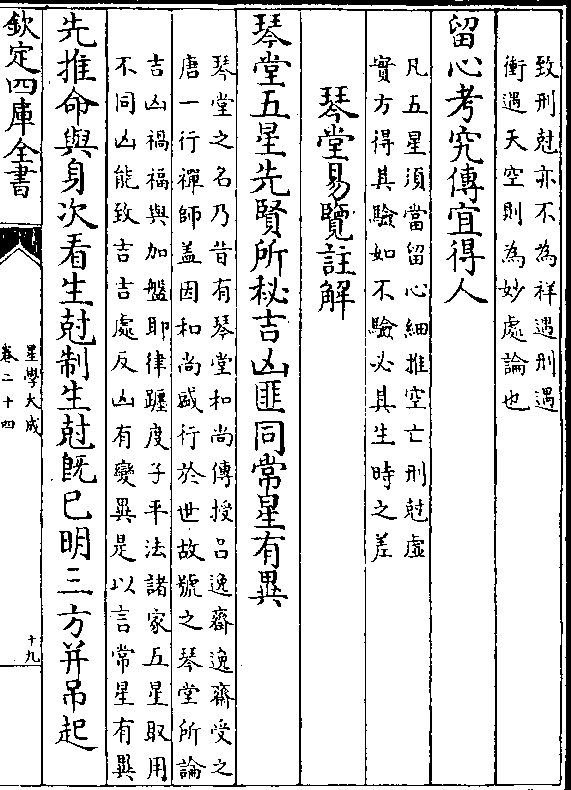 致刑尅亦不為祥遇刑遇
衝遇天空則為妙處論也
留心考究傳宜得人
凡五星須當留心細推空亡刑尅虛
實方得其驗如不驗必其生時之差
琴堂易覽註解
琴堂五星先賢所秘吉凶匪同常星有異
琴堂之名乃昔有琴堂和尚傳授吕逸齋逸齋受之
唐一行禪師盖因和尚盛行於世故號之琴堂所論
吉凶禍福與加盤耶律躔度子平法諸家五星取用
不同凶能致吉吉處反凶有變異是以言常星有異
先推命與身次看生尅制生尅既已明三方并吊起
欽定四庫全書
星學大成
卷二十四
十九